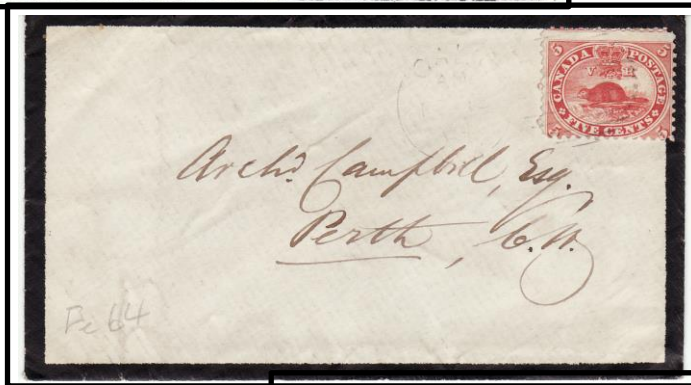 5 CANADA POSTAGE 5
V R
5 FIVE CENTS 5
Archd Campbell, Esq.
Perth, C.W.